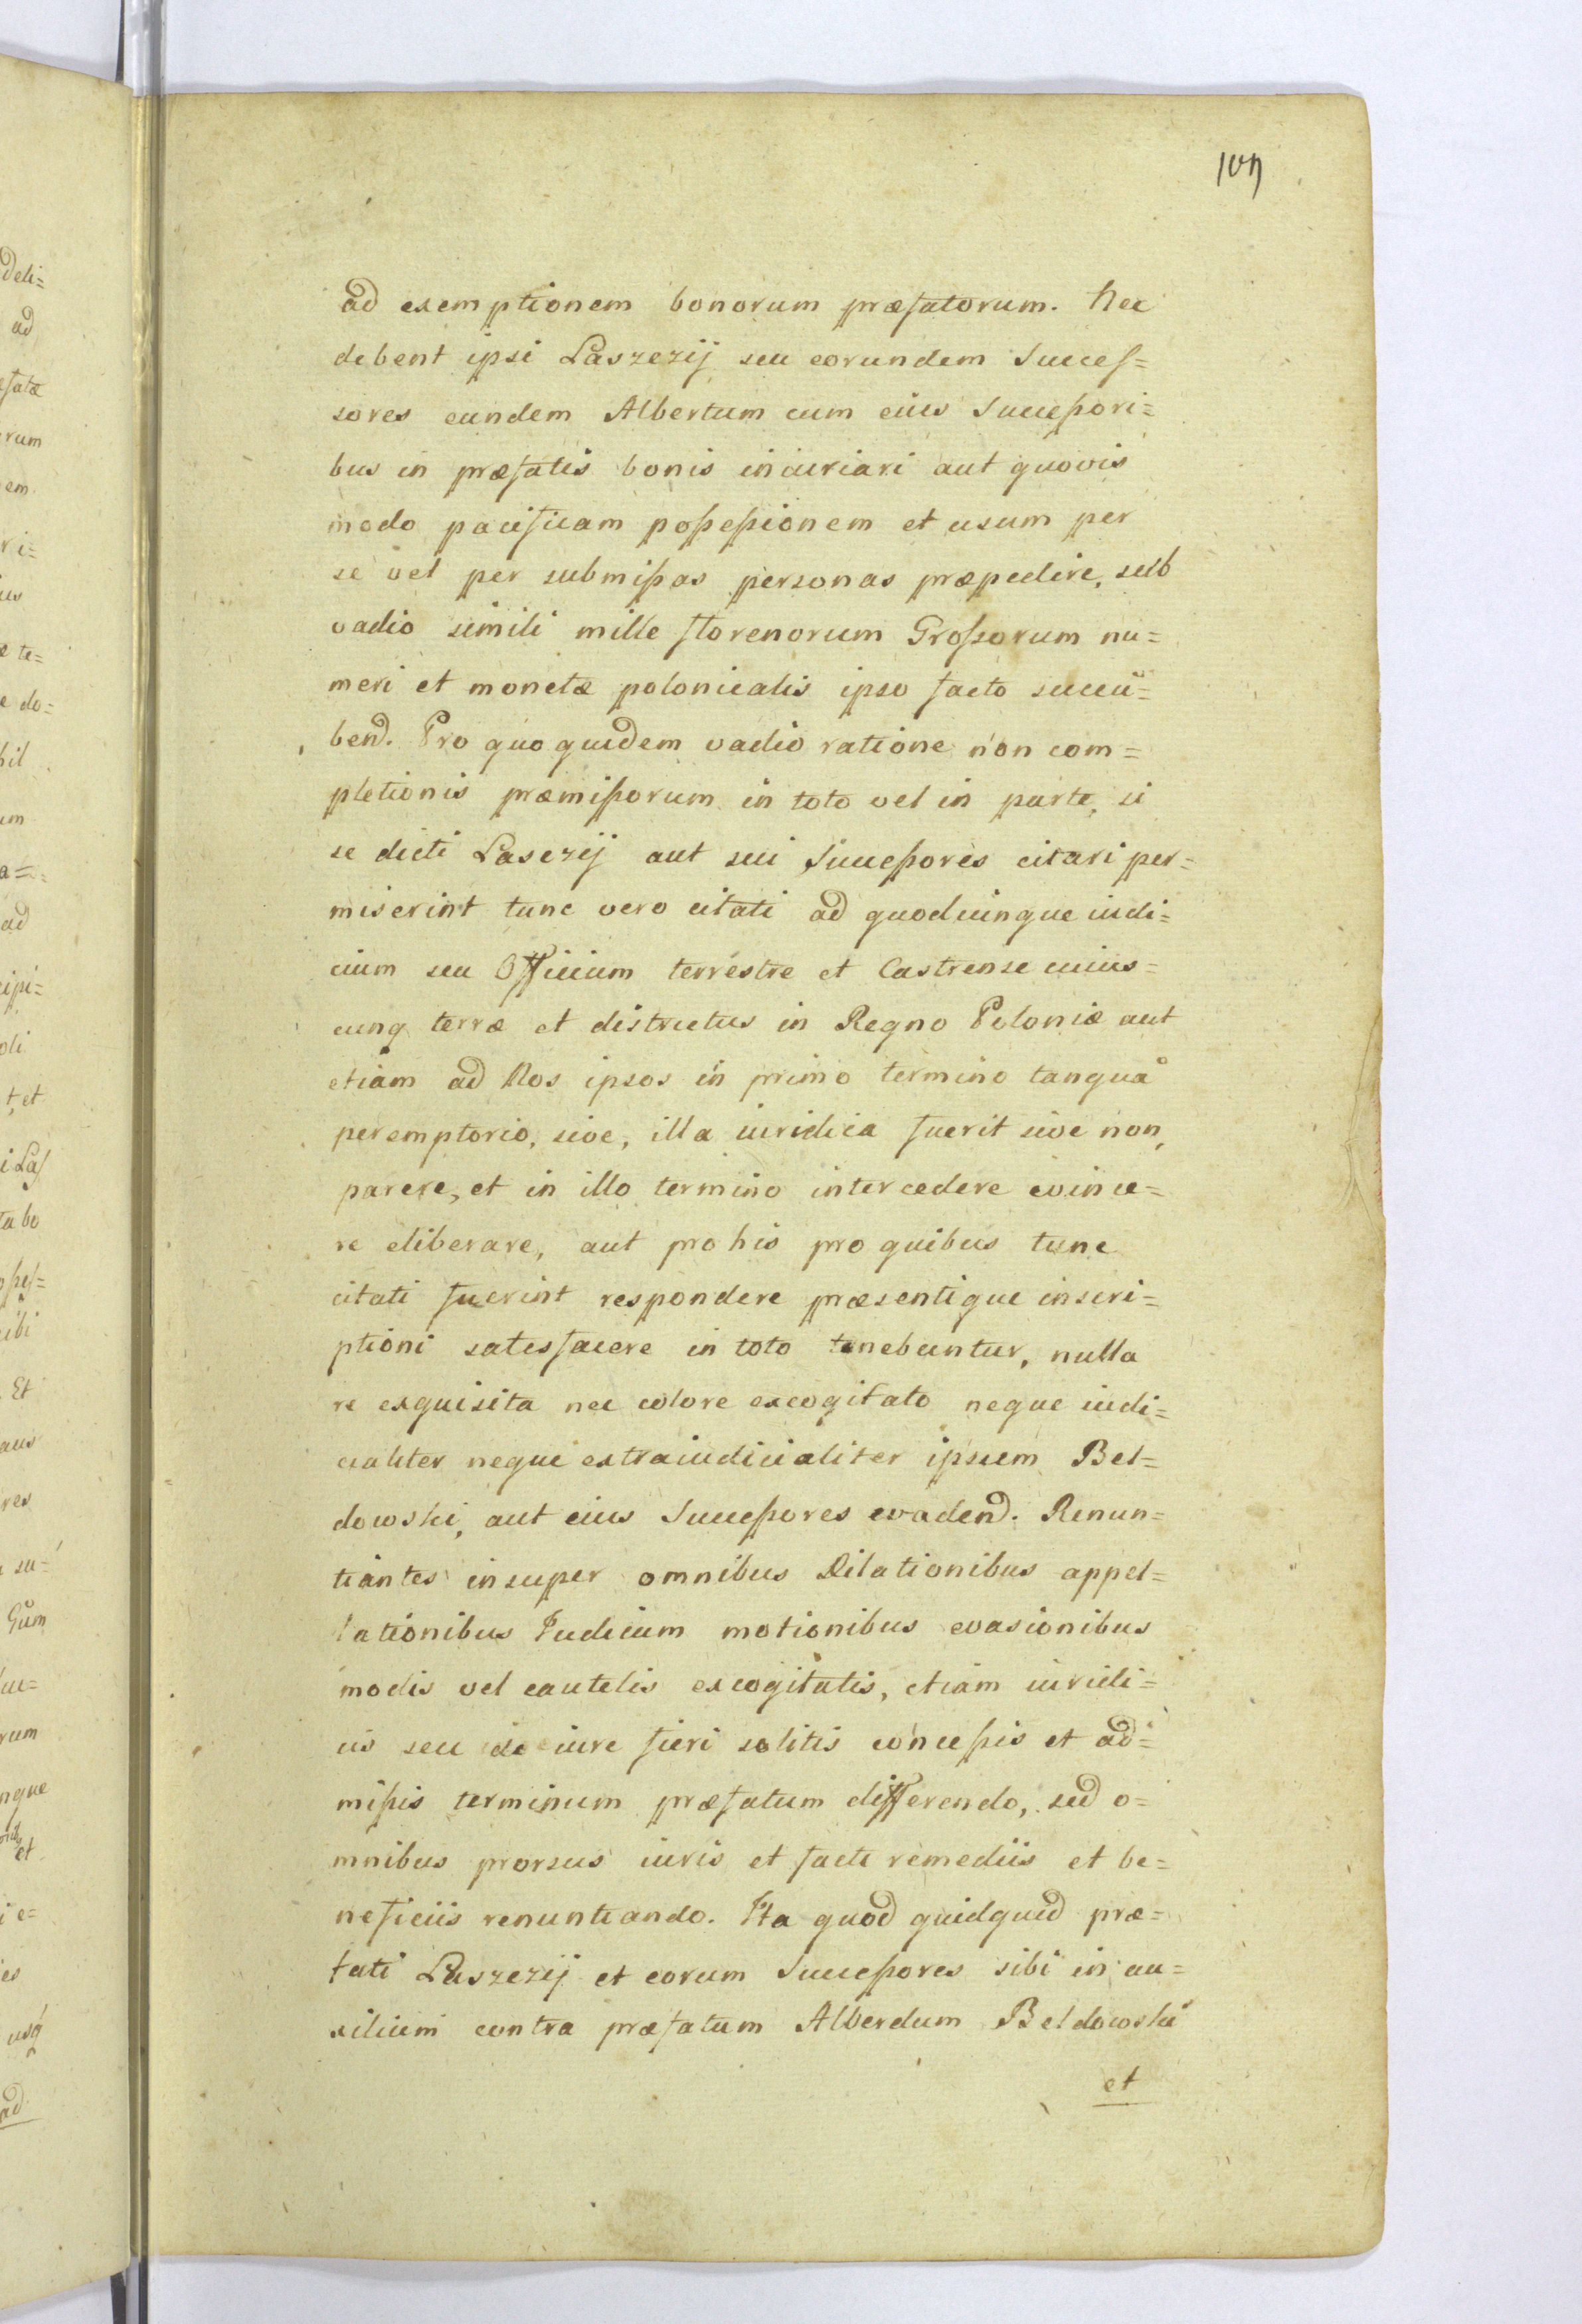 ad exemptionem bonorum præfatorum. Nec
debent ipsi Laszczij seu eorundem Succes=
sores eundem Albertum cum eius Successori=
bus in præfatis bonis iniuriari aut quovis
modo pacificam possessionem et usum per
se vel per submissas personas præpedire, sub
vadio simili mille florenorum Grossorum nu=
meri et monetæ polonicalis ipso facto succū=
bend. Pro quo quidem vadio ratione non com=
pletionis præmissorum in toto vel in parte, si
se dicti Lasczij aut sui Successores citari per=
miserint tunc vero citati ad quodcunque iudi=
cium seu Officium terrestre et Castrense cuius=
cunq terræ et districtus in Regno Poloniæ aut
etiam ad Nos ipsos in primo termino tanquā
peremptorio, sive, illa iuridica fuerit sive non,
parere, et in illo termino intercedere evince=
re eliberare, aut pro his pro quibus tunc
citati fuerint respondere præsentique inscri=
ptioni satisfacere in toto tenebuntur, nulla
re exquisita nec colore excogitato neque iudi=
cialiter neque extraiudicialiter ipsum Bel=
dowski, aut eius Successores evadend. Renun=
tiantes insuper omnibus Dilationibus appel=
lationibus Iudicum motionibus evasionibus
modis vel cautelis excogitatis, etiam iuridi=
cis seu de iure fieri solitis concessis et ad=
missis terminum præfatum differendo, sed o=
mnibus prorsus iuris et facti remediis et be=
neficiis renuntiando. Ita quod quidquid præ=
fati Laszczij et eorum Successores sibi in au=
xilium contra præfatum Alberdum Beldowski
et